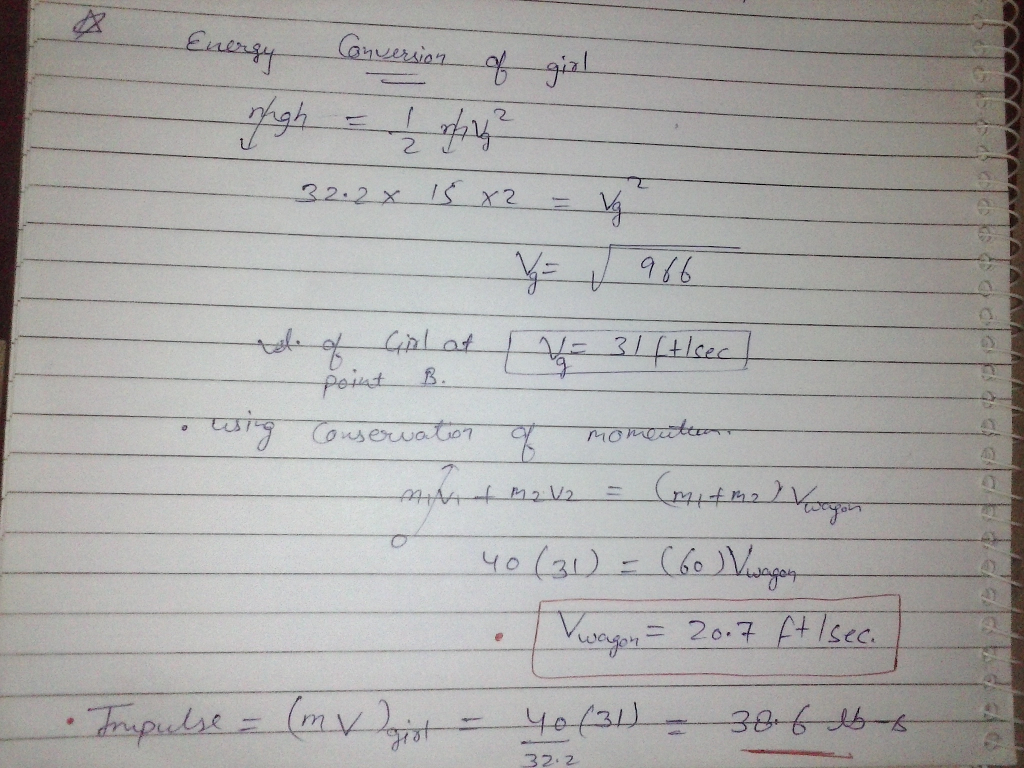 Energy Conversion of girl
mgh = 1/2 mVg²
32.2 x 15 x2 = Vg²
Vg = √966
vel. of Girl at point B. Vg = 31 ft/sec
• using Conservation of momentum.
m1V1 + m2V2 = (m1+m2) Vwagon
0
40 (31) = (60) Vwagon
• Vwagon = 20.7 ft/sec.
• Impulse = (mV)girl = 40/32.2 (31) = 38.6 lb-s